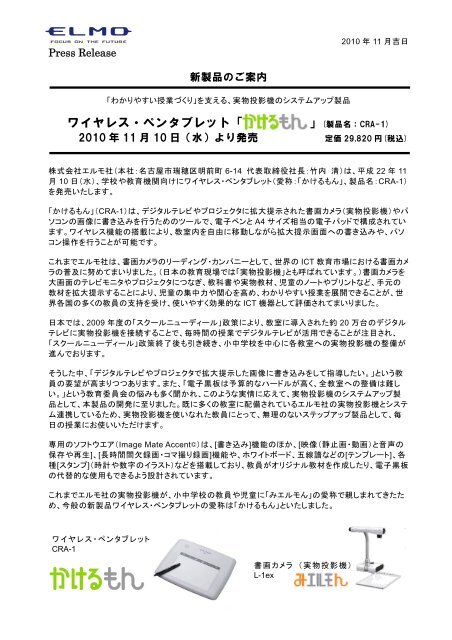 ELMO
FOCUS ON THE FUTURE
Press Release
2010 年 11 月吉日
新製品のご案内
「わかりやすい授業づくり」を支える、実物投影機のシステムアップ製品
ワイヤレス・ペンタブレット「かけるもん」(製品名：CRA-1)
2010 年 11 月 10 日（水）より発売 定価 29,820 円(税込)
株式会社エルモ社(本社：名古屋市瑞穂区明前町 6-14 代表取締役社長：竹内 清)は、平成 22 年 11
月 10 日(水)、学校や教育機関向けにワイヤレス・ペンタブレット(愛称：「かけるもん」、製品名：CRA-1)
を発売いたします。
「かけるもん」(CRA-1)は、デジタルテレビやプロジェクタに拡大提示された書画カメラ(実物投影機)やパ
ソコンの画像に書き込みを行うためのツールで、電子ペンと A4 サイズ相当の電子パッドで構成されてい
ます。ワイヤレス機能の搭載により、教室内を自由に移動しながら拡大提示画面への書き込みや、パソ
コン操作を行うことが可能です。
これまでエルモ社は、書画カメラのリーディング・カンパニーとして、世界の ICT 教育市場における書画カメ
ラの普及に努めてまいりました。（日本の教育現場では「実物投影機」とも呼ばれています。）書画カメラを
大画面のテレビモニタやプロジェクタにつなぎ、教科書や実物教材、児童のノートやプリントなど、手元の
教材を拡大提示することにより、児童の集中力や関心を高め、わかりやすい授業を展開できることが、世
界各国の多くの教員の支持を受け、使いやすく効果的な ICT 機器として評価されてまいりました。
日本では、2009 年度の「スクールニューディール」政策により、教室に導入された約 20 万台のデジタル
テレビに実物投影機を接続することで、毎時間の授業でデジタルテレビが活用できることが注目され、
「スクールニューディール」政策終了後も引き続き、小中学校を中心に各教室への実物投影機の整備が
進んでおります。
そうした中、「デジタルテレビやプロジェクタで拡大提示した画像に書き込みをして指導したい。」という教
員の要望が高まりつつあります。また、「電子黒板は予算的なハードルが高く、全教室への整備は難し
い。」という教育委員会の悩みも多く聞かれ、このような実情に応えて、実物投影機のシステムアップ製
品として、本製品の開発に至りました。既に多くの教室に配備されているエルモ社の実物投影機とシステ
ム連携しているため、実物投影機を使いなれた教員にとって、無理のないステップアップ製品として、毎
日の授業にお使いいただけます。
専用のソフトウエア(Image Mate Accent©)は、[書き込み]機能のほか、[映像（静止画・動画）と音声の
保存や再生]、[長時間間欠録画・コマ撮り録画]機能や、ホワイトボード、五線譜などの[テンプレート]、各
種[スタンプ](時計や数字のイラスト)などを搭載しており、教員がオリジナル教材を作成したり、電子黒板
の代替的な使用もできるよう設計されています。
これまでエルモ社の実物投影機が、小中学校の教員や児童に「みエルモん」の愛称で親しまれてきたた
め、今般の新製品ワイヤレス・ペンタブレットの愛称は「かけるもん」といたしました。
ワイヤレス・ペンタブレット
CRA-1
かけるもん
書画カメラ （実物投影機）
L-1ex
みエルモん